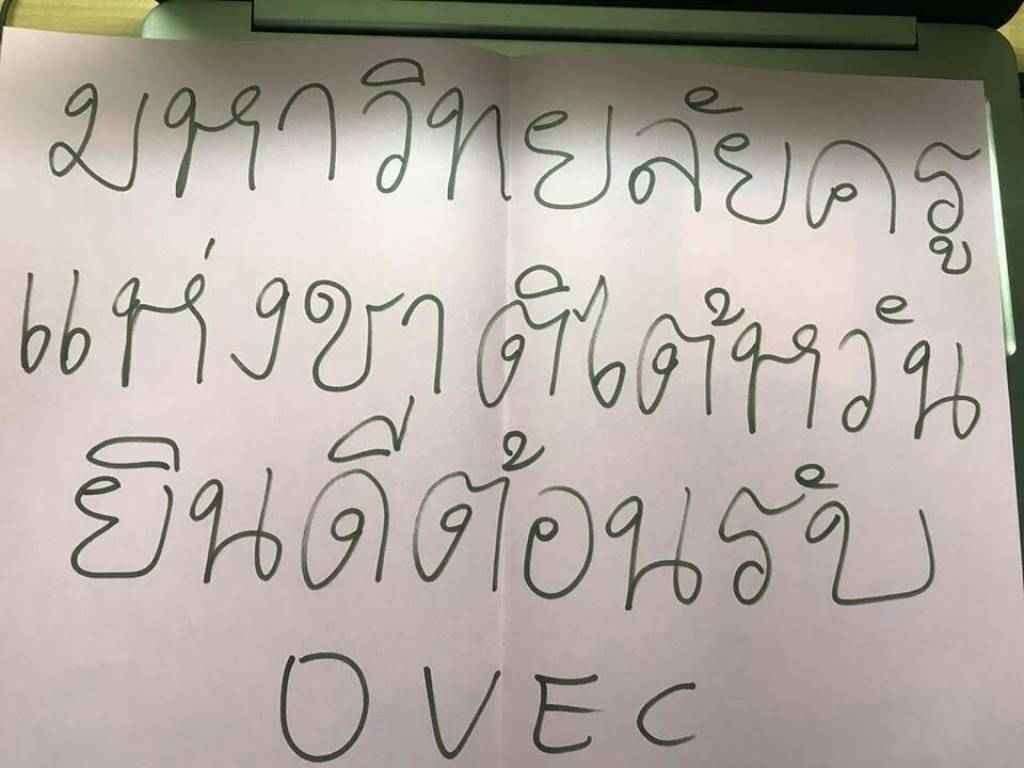 มหาวิทยลัยครู
แห่งชาติไต้หวัน
ยินดีต้อนรับ
OVEC